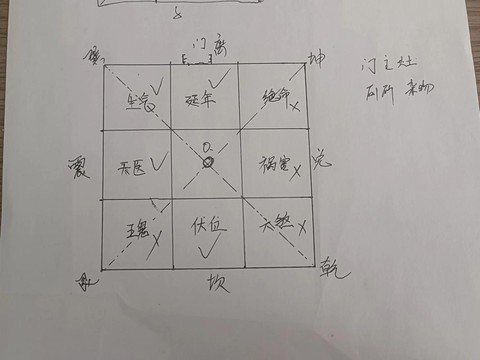 门 离
坤
门主灶
厕所 杂物
生气
延年
绝命
震
天医
O
祸害
兑
五鬼
伏位
六煞
坎
乾